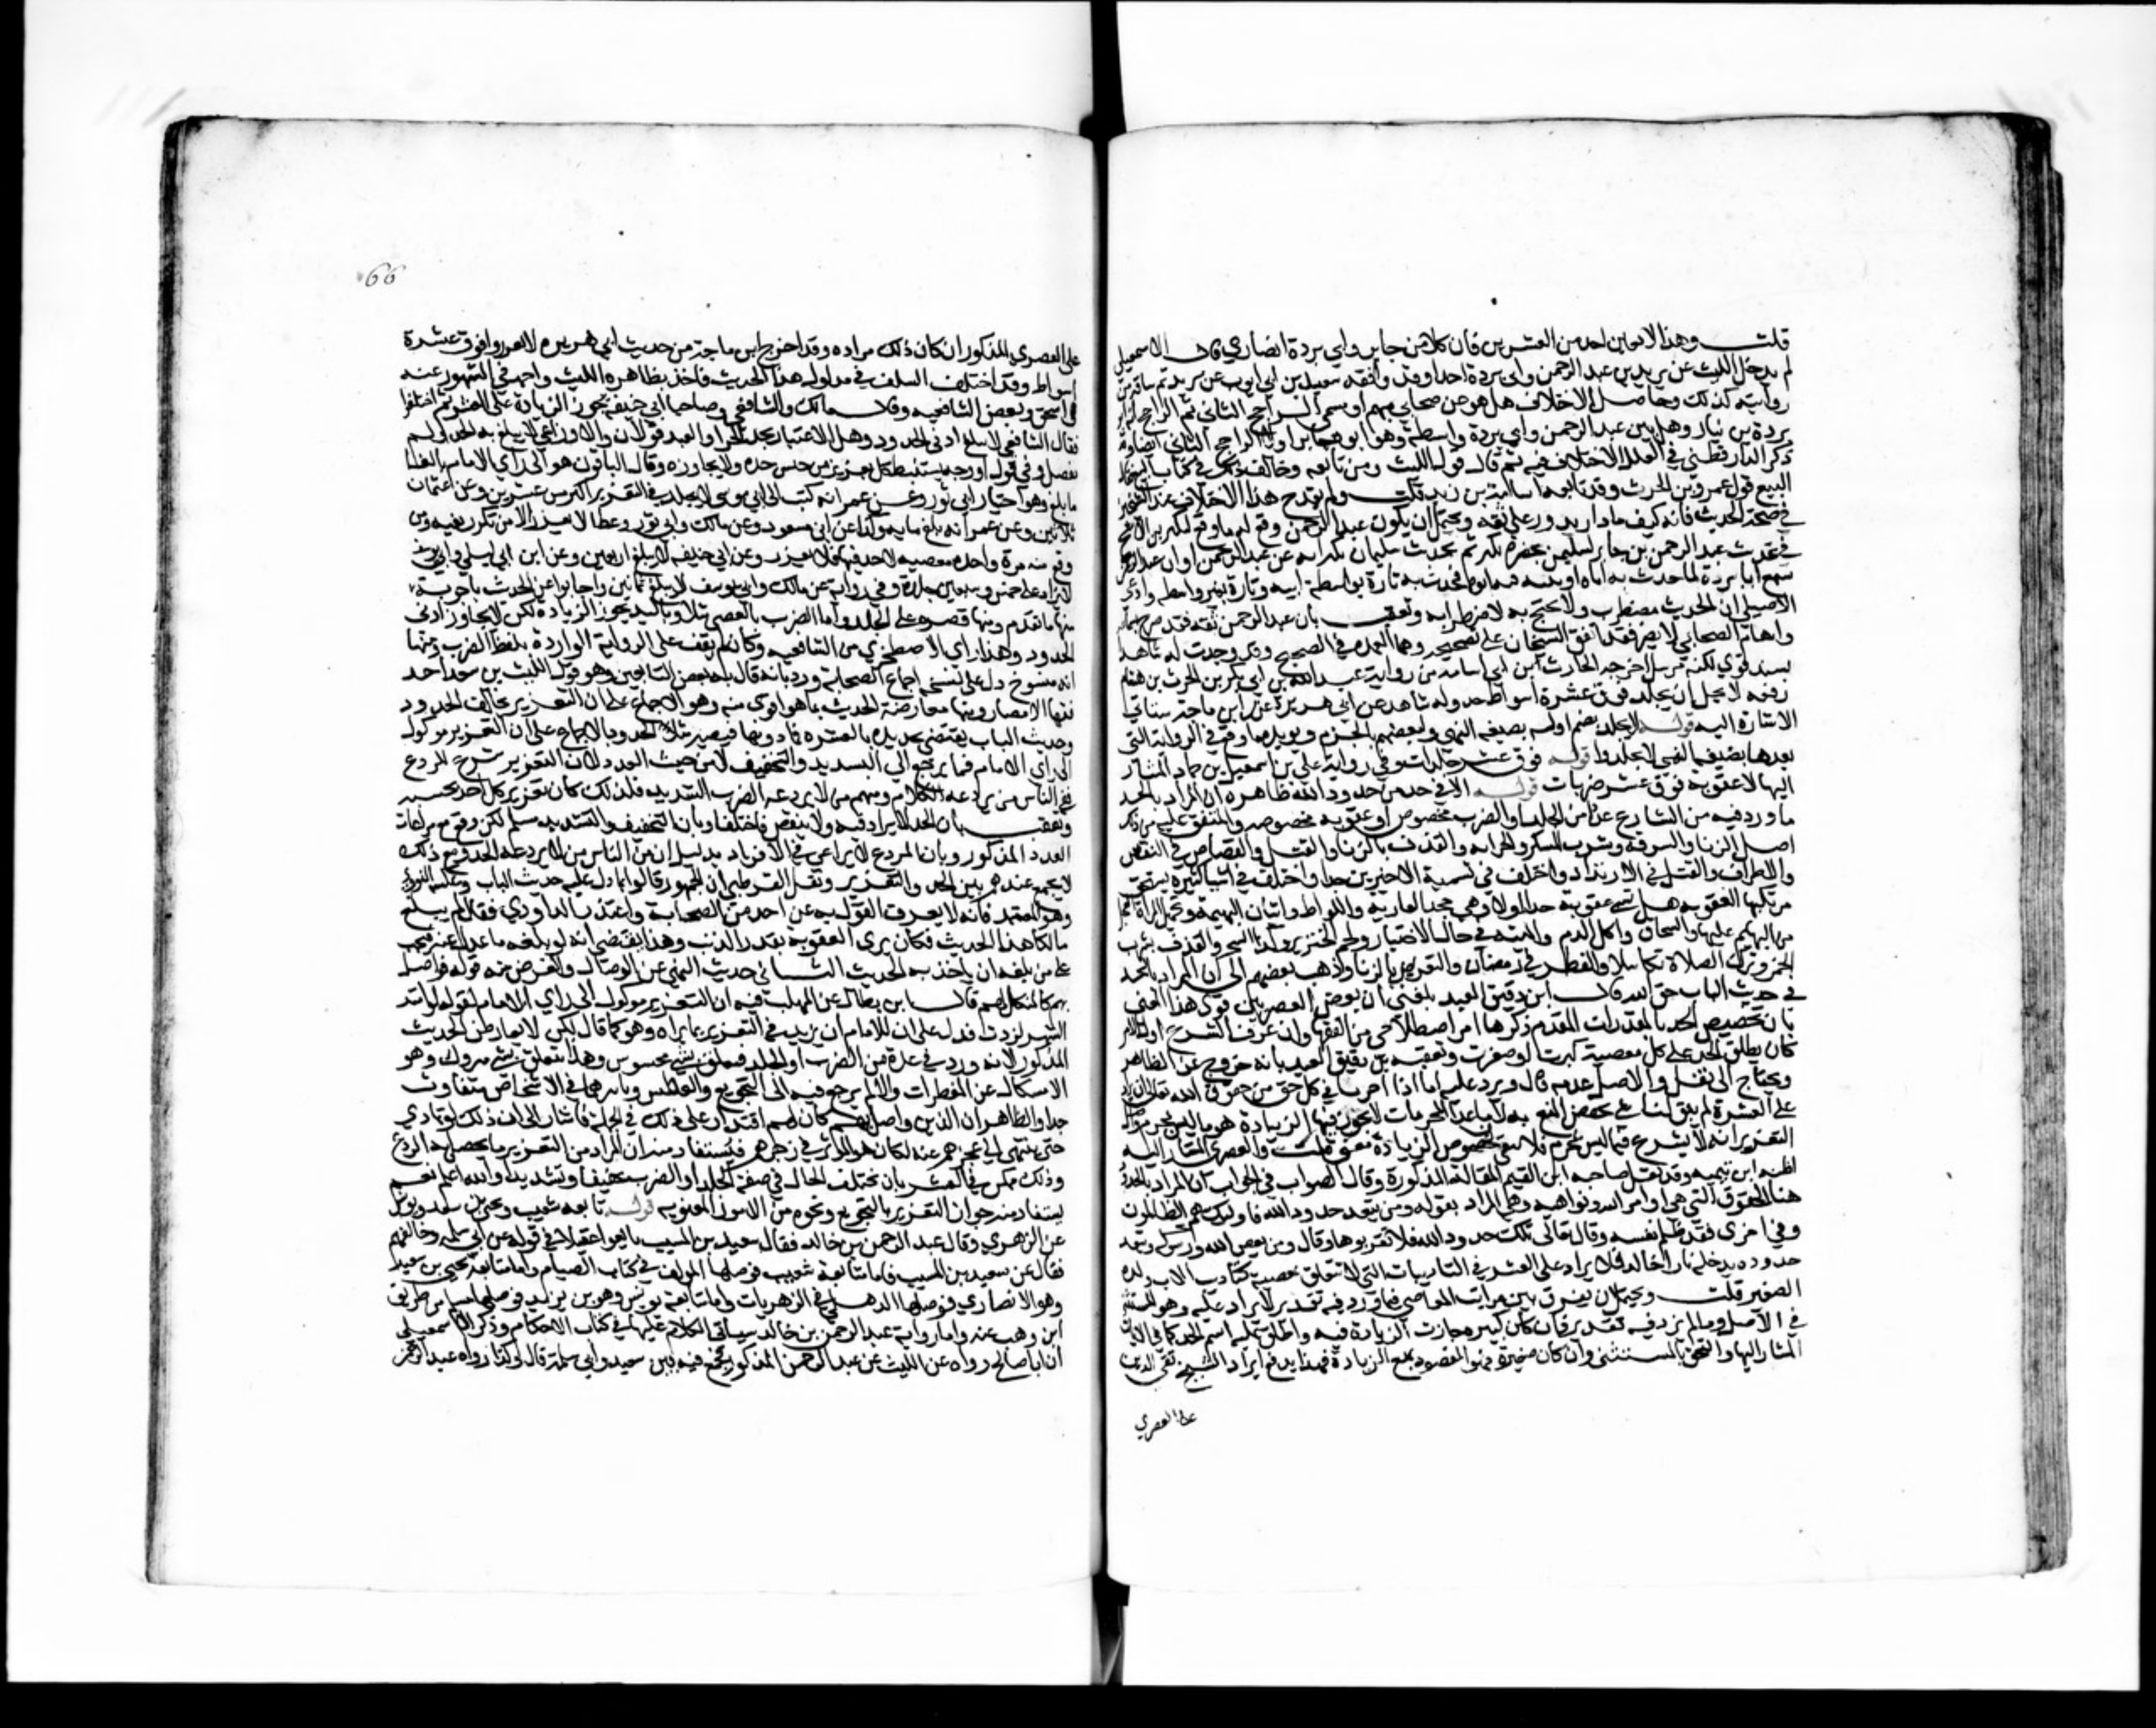 قلت وهذا لا يعين احد من العشرين فان كلا من جابر وابي بردة انصاري قال الاسمعيلي
لم يدخل الليث عن يزيد بين عبد الرحمن وابي بردة احدا وقد وافقه سعيد بن ابي ايوب عن يزيد ثم ساقه من
روايته كذلك وحاصل الاختلاف هل هو من صحابي مبهم او مسمى الراجح الثاني ثم الراجح انه ابو
بردة بن نيار وهل بين عبد الرحمن وابي بردة واسطة وهو ابوه جابر او لا الراجح الثاني ايضا وقد
ذكر الدارقطني في العلل الاختلاف فيه ثم قال قول الليث ومن تابعه وخالف ذلك في كتاب
التتبع قول عمرو بن الحرث وقد تابعه اسامة بن زيد قلت ولم يقدح هذا الاختلاف عند الشيخين
في صحة الحديث فانه كيف ما دار يدور على ثقة ويحتمل ان يكون عبد الرحمن وقع له ما وقع لبكير بن الاشج
في تحديث عبد الرحمن بن جابر لسليمن بحضرة بكير ثم تحديث سليمان بكيرا به عن عبد الرحمن او ان عبد الرحمن
سمع ابا بردة لما حدث به اباه وثبته فيه ابوه فحدث به تارة بواسطة ابيه وتارة بغير واسطة وادعى
الاصيلي ان الحديث مضطرب ولا يحتج به لاضطرابه وتعقب بان عبد الرحمن ثقة فقد صرح بسماعه
وابهام الصحابي لا يضر وقد اتفق الشيخان على تصحيحه وهما العمدة في الصحيح وقد وجدت له شاهدا
بسند قوي لكنه مرسل اخرجه الحارث ابن ابي اسامة من رواية عبد الله بن ابي بكر بن الحرث بن هشام
رفعه لا يحل ان يجلد فوق عشرة اسواط الا في حد وله شاهد عن ابي هريرة عند ابن ماجة ستاتي
الاشارة اليه قوله لا يجلد بضم اوله بصيغة النهي ولبعضهم بالجزم ويؤيده ما وقع في الرواية التي
بعدها بصيغة النهي لا تجلدوا قوله فوق عشر جلدات وفي رواية علي بن اسمعيل بن حماد المشار
اليها لا عقوبة فوق عشر ضربات قوله الا في حد من حدود الله ظاهره ان المراد بالحد
ما ورد فيه من الشارع عدد من الجلد او الضرب مخصوص او عقوبة مخصوصة والمتفق عليه من ذلك
اصل الزنا والسرقة وشرب المسكر والحرابة والقذف بالزنا والقتل والقصاص في النفس
والاطراف والقتل في الارتداد واختلف في تسمية الاخيرين حدا واختلف في اشيا كثيرة يستحق
مرتكبها العقوبة هل تسمى عقوبته حدا او لا وهي جحد العارية واللواط واتيان البهيمة وتحميل المراة الفحل
من البهايم عليها والسحاق واكل الدم والميتة في حال الاختيار ولحم الخنزير وكذا السحر والقذف بشرب
الخمر وترك الصلاة تكاسلا والفطر في رمضان والتعريض بالزنا وذهب بعضهم الى ان المراد بالحد
في حديث الباب حق الله قال ابن دقيق العيد بلغني ان بعض العصريين قرر هذا المعنى
بان تخصيص الحد بالمقدرات المقدم ذكرها امر اصطلاحي من الفقها وان عرف الشرع اول الامر
كان يطلق الحد على كل معصية كبرت او صغرت وتعقبه بن دقيق العيد بانه خروج عن الظاهر
ويحتاج الى نقل والاصل عدمه قال ويرد عليه انا اذا اجزنا في كل حق من حقوق الله تعالى ان يزاد
على العشرة لم يبق لنا شي يختص المنع به لان ما عدا المحرمات التي لا يجوز فيها الزيادة هو ما ليس بمحرم واصل
التعزير انه لا يشرع فيما ليس بمحرم فلا يبقى لخصوص الزيادة معنى قلت والعصري المشار اليه
اظنه ابن تيمية وقد نقل صاحبه ابن القيم المقالة المذكورة وقال الصواب في الجواب ان المراد بالحدود
هنا الحقوق التي هي اوامر الله ونواهيه وهي المراد بقوله ومن يتعد حدود الله فاوليك هم الظالمون
وفي اخرى فقد ظلم نفسه وقال تعالى تلك حدود الله فلا تقربوها وقال ومن يعص الله ورسوله ويتعد
حدوده يدخله نارا خالدا فلا يزاد على العشر في التاديبات التي لا تتعلق بمعصية كتاديب الاب ولده
الصغير قلت ويحتمل ان يفرق بين مراتب المعاصي فما ورد فيه تقدير لا يزاد عليه وهو المستثنى
في الاصل وما لم يرد فيه تقدير فان كان كبيرة جازت الزيادة فيه واطلق عليه اسم الحد كما في الايات
المشار اليها والتحق بالمستثنى وان كان صغيرة فهو المقصود بمنع الزيادة فهذا يدفع ايراد الشيخ تقي الدين
على العصري
66
على العصري المذكور ان كان ذلك مراده وقد اخرج ابن ماجة من حديث ابي هريرة لا تعزروا فوق عشرة
اسواط وقد اختلف السلف في مدلول هذا الحديث فاخذ بظاهره الليث واحمد في المشهور عنه
واسحق وبعض الشافعية وقال مالك والشافعي وصاحبا ابي حنيفة تجوز الزيادة على العشر ثم اختلفوا
فقال الشافعي لا يبلغ ادنى الحدود وهل الاعتبار بحد الحر او العبد قولان والاوزاعي لا يبلغ به الحد ولم
يفصل وفي قول او وجه يستنبط كل تعزير من جنس حده ولا يجاوزه وقال الباقون هو الى راي الامام بالغا
ما بلغ وهو اختيار ابي ثور وعن عمر انه كتب الى ابي موسى لا يجلد في التعزير اكثر من عشرين وعن عثمان
ثلاثين وعن عمر انه بلغ ماية وكذا عن ابن مسعود وعن مالك وابي ثور وعطا لا يعزر الا من تكرر منه ومن
وقع منه مرة واحدة معصية لا حد فيها فلا يعزر وعن ابي حنيفة لا يبلغ اربعين وعن ابن ابي ليلى وابي يوسف
لا يزاد على خمس وسبعين جلدة وفي رواية عن مالك وابي يوسف لا يبلغ ثمانين واجابوا عن الحديث باجوبة
منها ما تقدم ومنها قصره على الجلد واما الضرب بالعصي مثلا وباليد فيجوز الزيادة لكن لا يجاوز ادنى
الحدود وهذا راي الاصطخري من الشافعية وكانه لم يقف على الرواية الواردة بلفظ الضرب ومنها
انه منسوخ دل على نسخه اجماع الصحابة ورد بانه قال به بعض التابعين وهو قول الليث بن سعد احد
فقها الامصار ومنها معارضة الحديث بما هو اقوى منه وهو الاجماع على ان التعزير يخالف الحدود
وحديث الباب يقتضي تحديده بالعشرة فما دونها فيصير مثل الحدود بالاجماع على ان التعزير موكول
الى راي الامام فيما يرجع الى التشديد والتخفيف لا من حيث العدد لان التعزير شرع للردع
ففي الناس من يردعه الكلام ومنهم من لا يردعه الضرب الشديد فلذلك كان تعزير كل احد بحسبه
وتعقب بان الحد لا يزاد فيه ولا ينقص فاختلفا وبان التخفيف والتشديد مسلم لكن مع مراعاة
العدد المذكور وبان الردع لا يراعى في الافراد بدليل ان من الناس من لا يردعه الحد ومع ذلك
لا يجمع عندهم بين الحد والتعزير ونقل القرطبي ان الجمهور قالوا بما دل عليه حديث الباب وعكسه النووي
وهو المعتمد فانه لا يعرف القول به عن احد من الصحابة واعتذر الداودي فقال لم يبلغ
مالكا هذا الحديث فكان يرى العقوبة بقدر الذنب وهذا يقتضي انه لو بلغه ما عدل عنه فيجب
على من بلغه ان ياخذ به الحديث الثاني حديث النهي عن الوصال والغرض منه قوله فواصل
بهم كالمنكل لهم قال ابن بطال عن المهلب فيه ان التعزير موكول الى راي الامام لقوله لو امتد
الشهر لزدت فدل على ان للامام ان يزيد في التعزير ما يراه وهو كما قال لكن لا يعارض الحديث
المذكور لانه ورد في عدد من الضرب او الجلد فيتعلق بشي محسوس وهذا يتعلق بشي متروك وهو
الامساك عن المفطرات والالم يرجع فيه الى التجويع والتعطيش وتاثيرهما في الاشخاص متفاوت
جدا والظاهر ان الذين واصل بهم كان لهم اقتدار على ذلك في الجملة فاشار الى ان ذلك لو تمادى
حتى ينتهي الى عجزهم عنه لكان هو الموثر في زجرهم فيستفاد منه ان المراد من التعزير ما يحصل به الردع
وذلك ممكن في العشر بان يختلف الحال في صفة الجلد او الضرب تخفيفا وتشديدا والله اعلم نعم
يستفاد منه جواز التعزير بالتجويع ونحوه من الامور المعنوية قوله تابعه شعيب ويحيى بن سعيد ويونس
عن الزهري وقال عبد الرحمن بن خالد فقال سعيد بن المسيب اي تابعوا عقيلا في قوله عن ابي سلمة وخالفهم
فقال عن سعيد بن المسيب فاما متابعة شعيب فوصلها المولف في كتاب الصيام واما متابعة يحيى بن سعيد
وهو الانصاري فوصلها الذهلي في الزهريات واما متابعة يونس وهو بن يزيد فوصلها مسلم من طريق
ابن وهب عنه واما رواية عبد الرحمن بن خالد سياتي الكلام عليها في كتاب الاحكام وذكر الاسمعيلي
ان ابا صالح رواه عن الليث عن عبد الرحمن المذكور فجمع فيه بين سعيد وابي سلمة قال وكذا رواه عبد الرحمن